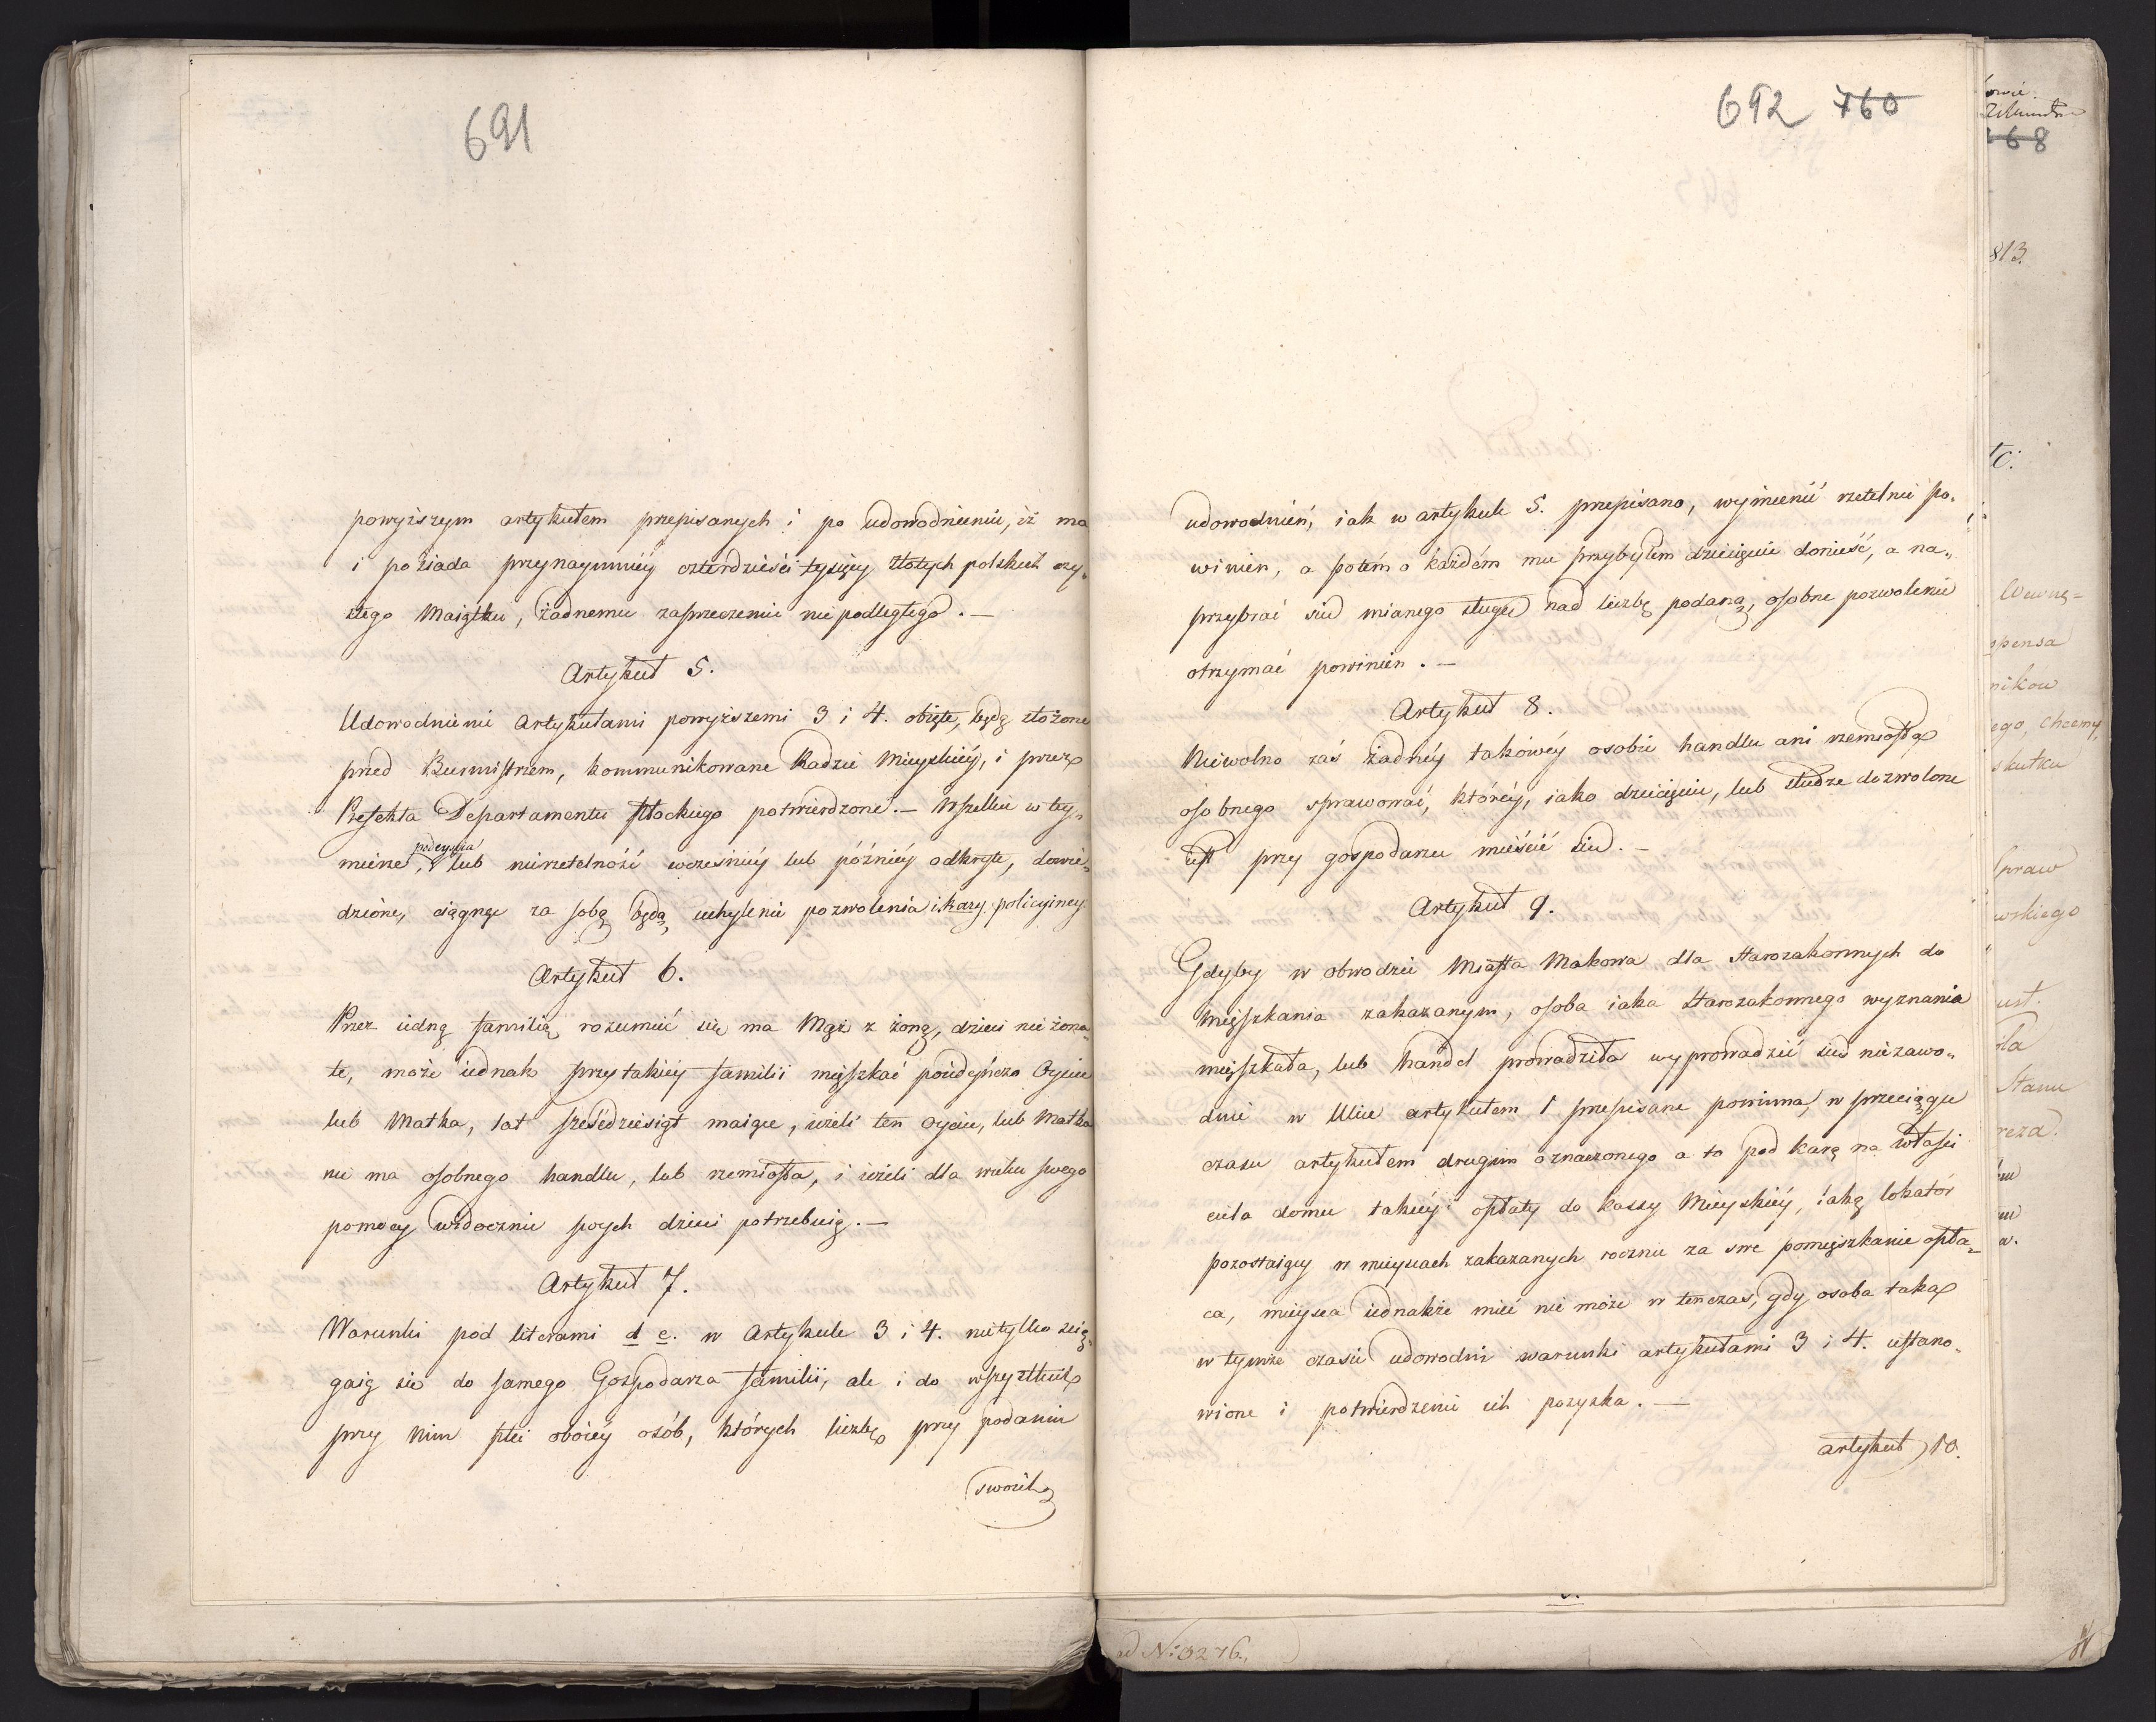 691
powyższym artykułem przepisanych i po udowodnieniu, iż ma
i posiada przynaymniéy czterdzieści tysięcy złotych polskich czy„
stego Maiątku, żadnemu zaprzeczeniu nie podległego. —
Artykuł 5.
Udowodnienie Artykułami powyższemi 3 i 4. obięte, będą złożone
przed Burmistrzem, kommunikowane Radzie Mieyskiéy, i przez
Prefekta Departamentu Płockiego potwierdzone. — Wszelkie w tey
mierze, podeyścia lub nierzetelność wcześniéy lub późniéy odkryte, dowie„
dzione, ciągnąć za sobą będą, uchylenie pozwolenia i kary policyiney
Artykuł 6.
Przez iedną familią rozumieć się ma Mąż z żoną, dzieci nie żona„
te, może iednak przy takiéy familii mięszkać poiedyńczo Oyciec
lub Matka, lat sześćdziesiąt maiące, ieżeli ten Oyciec, lub Matka
nie ma osobnego handlu, lub rzemiosła, i ieżeli dla wieku swego
pomocy widocznie swych dzieci potrzebuią. —
Artykuł 7.
Warunki pod literami d e. w Artykule 3 i 4. nie tylko ścią„
gaią się do samego Gospodarza familii, ale i do wszystkich
przy nim płci oboiéy osób, których liczbę przy podaniu
swoich
692 760
udowodnień, iak w artykule 5. przepisano, wymienić rzetelnie po„
winien, a potém o każdém mu przybyłem dziecięciu donieść, a na„
przybrać się mianego sługę nad liczbę podaną, osobne pozwolenie
otrzymać powinien. —
Artykuł 8.
Niewolno zaś żadnéy takowéy osobie handlu ani rzemiosła
osobnego sprawować, któréy, iako dziecięciu, lub słudze dozwolone
iest przy gospodarzu mieścić się. —
Artykuł 9.
Gdyby w obwodzie Miasta Makowa dla Starozakonnych do
mięszkania zakazanym, osoba iaka Starozakonnego wyznania
mięszkała, lub handel prowadziła wyprowadzić się niezawo„
dnie w Ulice artykułem 1 przepisane powinna, w przeciągu
czasu artykułem drugim oznaczonego a to pod karą na właści
ciela domu takiéy opłaty do kassy Mieyskiéy, iaką lokatór
pozostaiący w mieyscach zakazanych rocznie za swe pomięszkanie opła„
ca, mieysca iednakże mieć nie może w tenczas, gdy osoba taka
w tymże czasie udowodni warunki artykułami 3 i 4. ustano„
wione i potwierdzenie ich pozyska. —
artykuł 10.
ad No: 3276.
768
813.
Wewnę=
spensa
nikow
ego, chcemy,
skutku
spraw
wskiego
Stanu